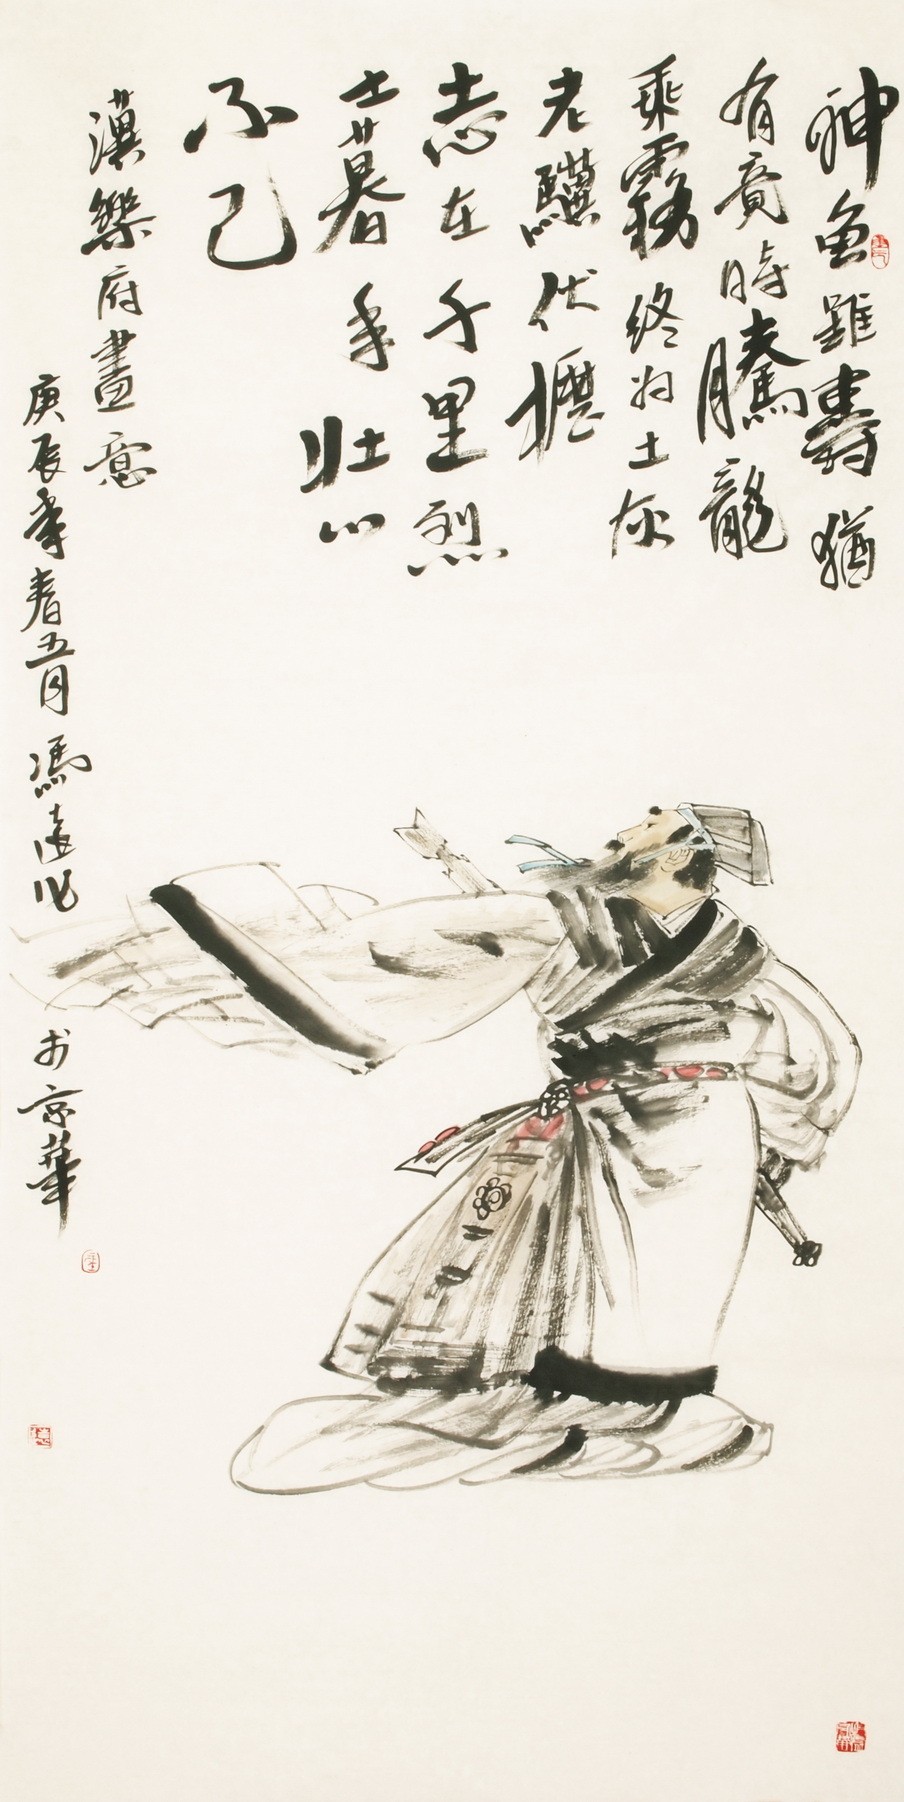 神龜雖壽猶
有竟時騰龍
乘霧終為土灰
老驥伏櫪
志在千里烈
士暮年壯心
不已
漢樂府畫意
庚辰年春五月馮遠作於京華